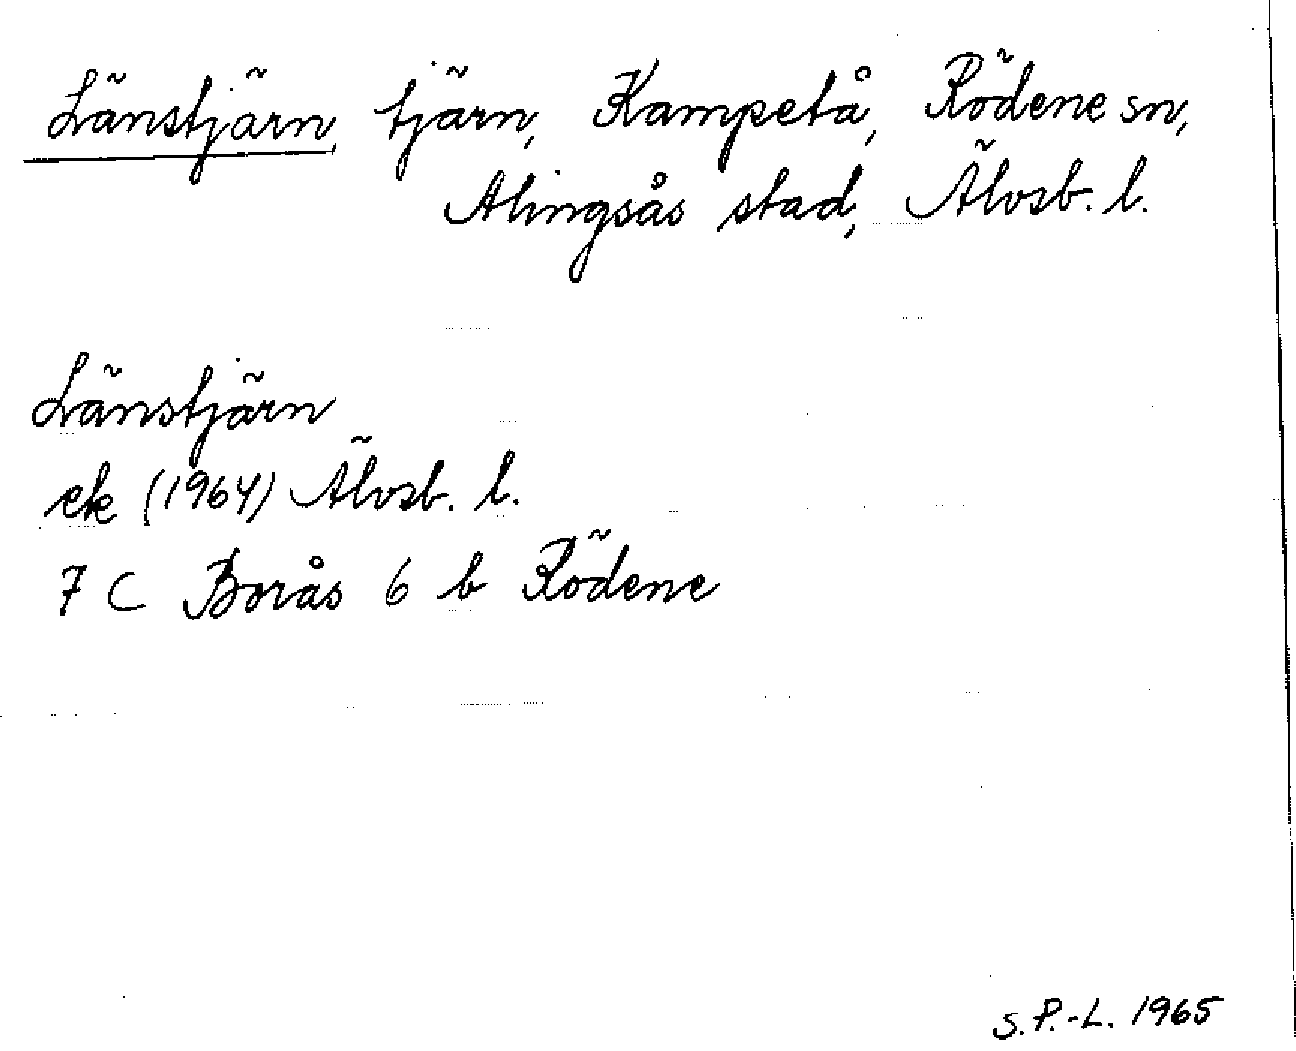 Länstjärn, tjärn, Kampetå, Rödene sn,
Alingsås stad, Älvsb. l.
Länstjärn
ek (1964) Älvsb. l.
7 C Borås 6 b Rödene
S. P.-L. 1965